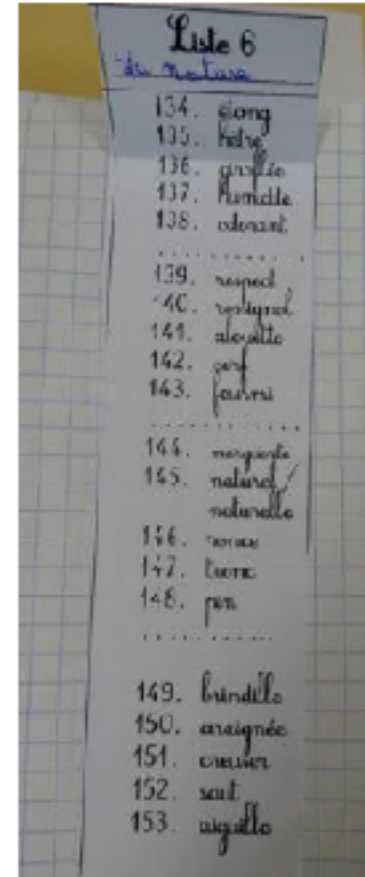 Liste 6
La nature
134. étang
135. hêtre
136. giroflée
137. humidité
138. odorant
139. respect
140. rossignol
141. alouette
142. cerf
143. fourmi
144. marguerite
145. naturel/
naturelle
146.
147. tronc
148. pin
149. brindille
150. araignée
151. creuser
152. saut
153. aiguille